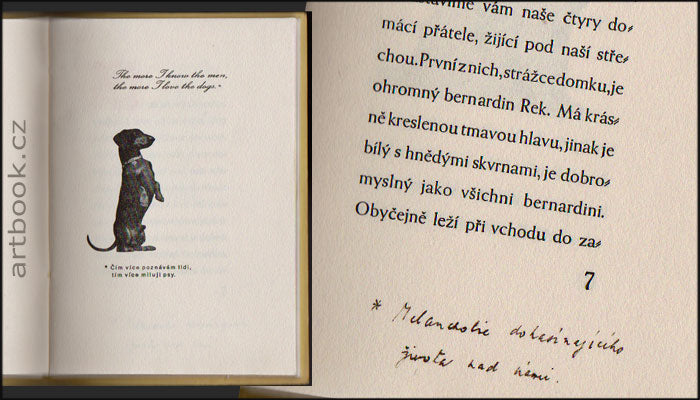 artbook.cz
The more I know the men,
the more I love the dogs.*
* Čím více poznávám lidi,
tím více miluji psy.
stavíme vám naše čtyry do-
mácí přátele, žijící pod naší stře-
chou. První z nich, strážce domku, je
ohromný bernardin Rek. Má krás-
ně kreslenou tmavou hlavu, jinak je
bílý s hnědými skvrnami, je dobro-
myslný jako všichni bernardini.
Obyčejně leží při vchodu do za-
7
* Melancholie dohasínajícího
života nad námi.